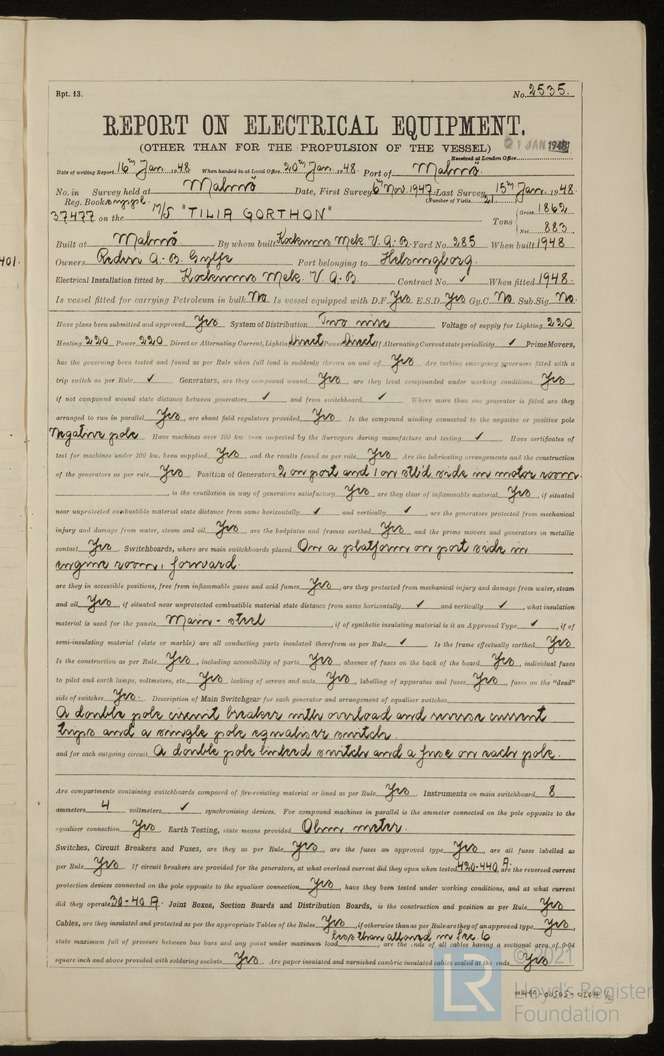 Rpt. 13.
No. 2535.
REPORT ON ELECTRICAL EQUIPMENT.
(OTHER THAN FOR THE PROPULSION OF THE VESSEL)
21 JAN 1948
Received at London Office
Date of writing Report 16th Jan. 1948. When handed in at Local Office 20th Jan. 1948. Port of Malmö.
No. in Survey held at Malmö Date, First Survey 6th Nov. 1947. Last Survey 15th Jan. 1948.
Reg. Book. Suppl. (Number of Visits 21
37477 on the M/S "TILIA GORTHON" Tons { Gross 1862
Net 883
Built at Malmö By whom built Kockums Mek. V. A.-B. Yard No. 285 When built 1948
401.
Owners Rederi A.-B. Gylfe Port belonging to Helsingborg.
Electrical Installation fitted by Kockums Mek. V. A.-B. Contract No. ✓ When fitted 1948.
Is vessel fitted for carrying Petroleum in bulk No. Is vessel equipped with D.F. Yes. E.S.D. Yes Gy.C. No. Sub.Sig. No.
Have plans been submitted and approved Yes System of Distribution Two wire Voltage of supply for Lighting 220
Heating 220 Power 220 Direct or Alternating Current, Lighting Direct Power Direct If Alternating Current state periodicity ✓ Prime Movers,
has the governing been tested and found as per Rule when full load is suddenly thrown on and off Yes Are turbine emergency governors fitted with a
trip switch as per Rule ✓ Generators, are they compound wound Yes, are they level compounded under working conditions Yes,
if not compound wound state distance between generators ✓ and from switchboard ✓ Where more than one generator is fitted are they
arranged to run in parallel Yes, are shunt field regulators provided Yes Is the compound winding connected to the negative or positive pole
Negative pole Have machines over 100 kw. been inspected by the Surveyors during manufacture and testing ✓ Have certificates of
test for machines under 100 kw. been supplied Yes and the results found as per rule Yes Are the lubricating arrangements and the construction
of the generators as per rule Yes Position of Generators 2 on port and 1 on stb'd side in motor room.
, is the ventilation in way of generators satisfactory Yes are they clear of inflammable material Yes, if situated
near unprotected combustible material state distance from same horizontally ✓ and vertically ✓, are the generators protected from mechanical
injury and damage from water, steam and oil Yes, are the bedplates and frames earthed Yes and the prime movers and generators in metallic
contact Yes Switchboards, where are main switchboards placed On a platform on port side in
engine room, forward.
are they in accessible positions, free from inflammable gases and acid fumes Yes, are they protected from mechanical injury and damage from water, steam
and oil Yes, if situated near unprotected combustible material state distance from same horizontally ✓ and vertically ✓, what insulation
material is used for the panels Main - steel, if of synthetic insulating material is it an Approved Type ✓, if of
semi-insulating material (slate or marble) are all conducting parts insulated therefrom as per Rule ✓ Is the frame effectually earthed Yes
Is the construction as per Rule Yes, including accessibility of parts Yes, absence of fuses on the back of the board Yes, individual fuses
to pilot and earth lamps, voltmeters, etc., Yes locking of screws and nuts Yes, labelling of apparatus and fuses Yes, fuses on the "dead"
side of switches Yes. Description of Main Switchgear for each generator and arrangement of equaliser switches
A double pole circuit breaker with overload and reverse current
trips and a single pole equaliser switch.
and for each outgoing circuit A double pole linked switch and a fuse on each pole.
Are compartments containing switchboards composed of fire-resisting material or lined as per Rule Yes Instruments on main switchboard 8
ammeters 4 voltmeters ✓ synchronising devices. For compound machines in parallel is the ammeter connected on the pole opposite to the
equaliser connection Yes Earth Testing, state means provided Ohm meter.
Switches, Circuit Breakers and Fuses, are they as per Rule Yes, are the fuses an approved type Yes, are all fuses labelled as
per Rule Yes If circuit breakers are provided for the generators, at what overload current did they open when tested 420-440 A., are the reversed current
protection devices connected on the pole opposite to the equaliser connection Yes, have they been tested under working conditions, and at what current
did they operate 30-40 A. Joint Boxes, Section Boards and Distribution Boards, is the construction and position as per Rule Yes
Cables, are they insulated and protected as per the appropriate Tables of the Rules Yes, if otherwise than as per Rule are they of an approved type Yes,
state maximum fall of pressure between bus bars and any point under maximum load Less than allowed in Sec. 6, are the ends of all cables having a sectional area of 0·04
square inch and above provided with soldering sockets Yes. Are paper insulated and varnished cambric insulated cables sealed at the ends Yes
© 2021
LR
Lloyd's Register
Foundation